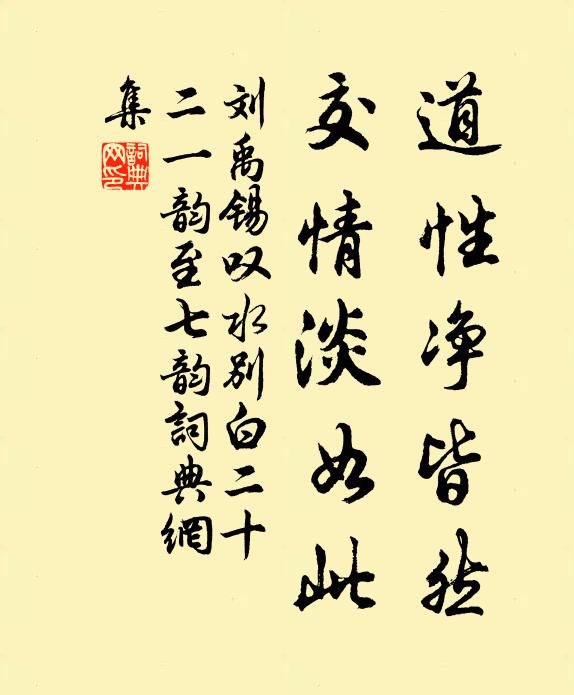 道性净皆然
交情淡如此
刘禹锡叹水别白二十
二一韵至七韵詞典網
集
詞典网印